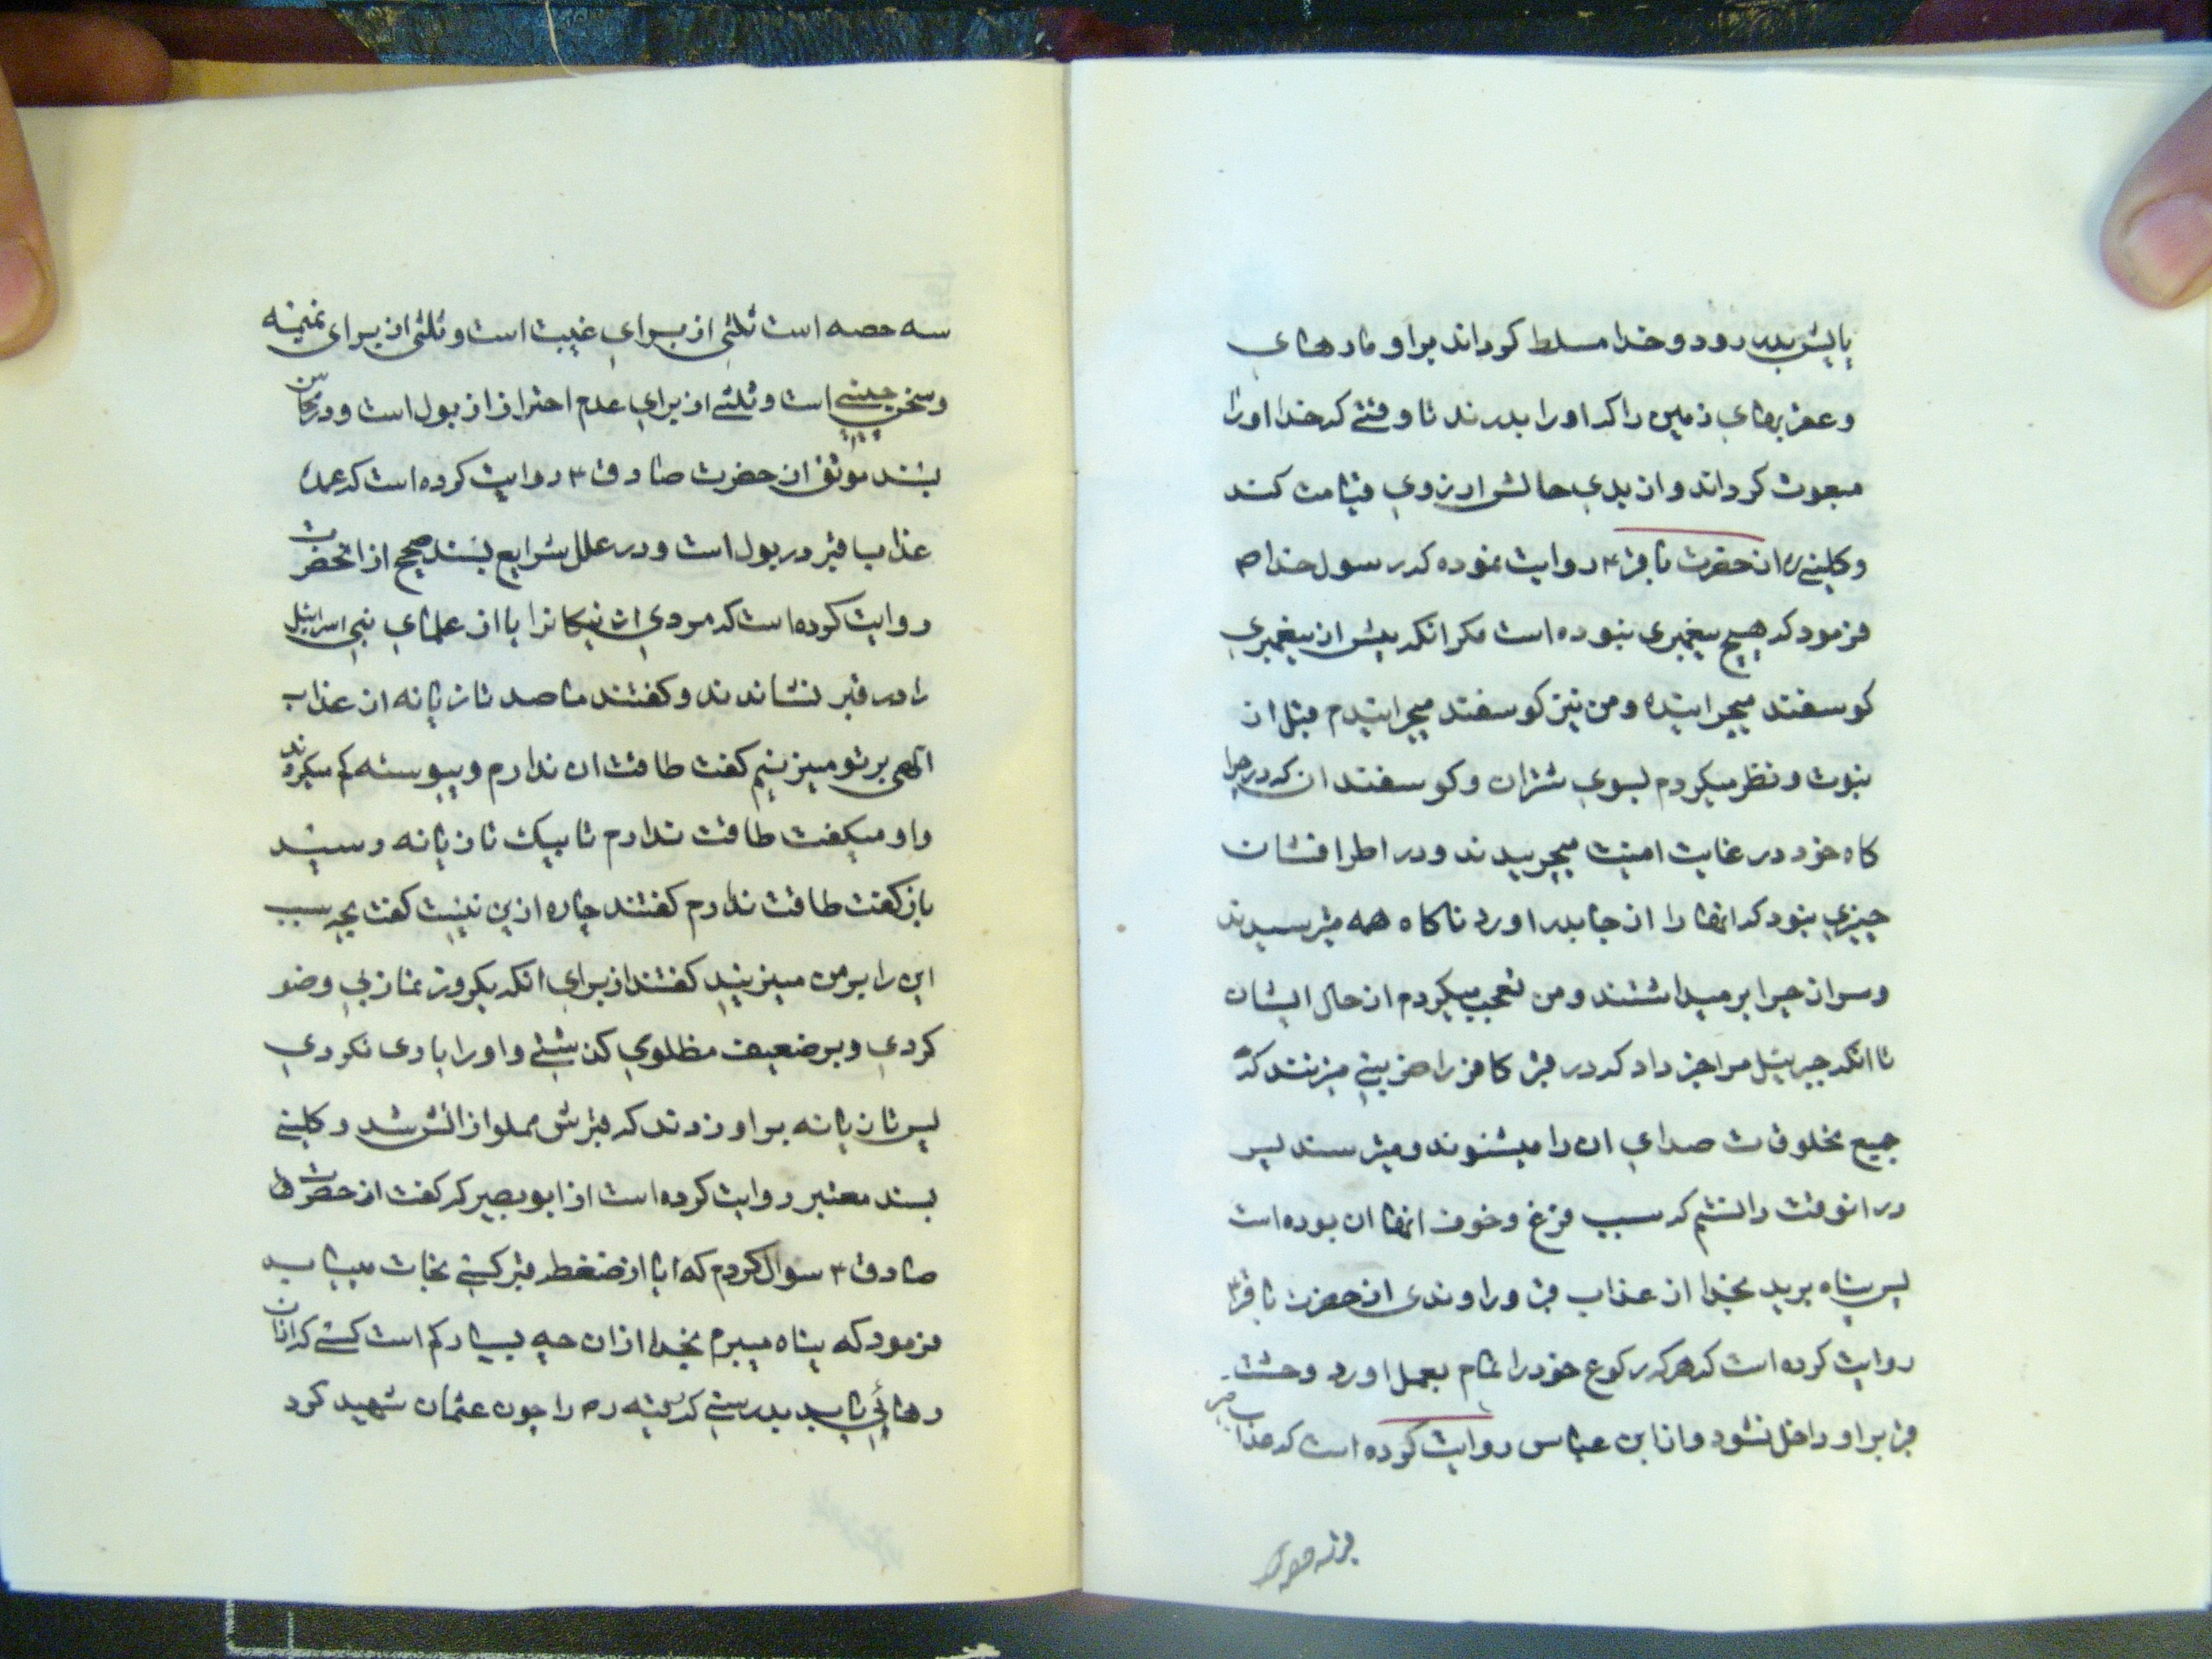 پایش بدر رود و خدا مسلط کرداند براو مارهای
و عقربهای زمین را که او را بدرند تا وقتی که خدا او را
مبعوث کرداند و از بدی حالش ارزوی قیامت کند
و کلینی ره از حضرت باقر ۴ روایت نموده که رسول خدا ص
فرمود که هیچ پیغمبری نبوده است مکر انکه پیش از پیغمبری
کوسفند میچرانیده و من نیز کوسفند میچرانیدم قبل از
نبوت و نظر میکردم بسوی شتران و کوسفندان که در چرا
کاه خود در غایت امنیت میچریدند و در اطرافشان
چیزی نبود که انها را از جا بدر اورد ناکاه همه میترسیدند
و سر از چرا بر میداشتند و من تعجب میکردم از حال ایشان
تا انکه جبرئیل مرا خبر داد که در قبر کافر را ضربتی میزنند که
جمیع مخلوقات صدای ان را میشنوند و میترسند پس
در انوقت دانستم که سبب فزع و خوف انها ان بوده است
پس پناه برید بخدا از عذاب قبر و راوندی از حضرت باقر ۴
روایت کرده است که هر که رکوع خود را تمام بعمل اورد وحشت
قبر بر او داخل نشود و از ابن عباس روایت کرده است که عذاب قبر
سه حصه است ثلثی از برای غیبت است و ثلثی از برای نمیمه
و سخن چینی است و ثلثی از برای عدم احتراز از بول است و در محاسن
بسند موثق از حضرت صادق ۴ روایت کرده است که عمده
عذاب قبر در بول است و در علل شرایع بسند صحیح از انحضرت
روایت کرده است که مردی از نیکانرا یا از علمای بنی اسرائیل
را در قبر نشاندند و کفتند ما صد تازیانه از عذاب
الهی بر تو میزنیم کفت طاقت ان ندارم و پیوسته کم میکردند
و او میکفت طاقت ندارم تا بیک تازیانه رسید
باز کفت طاقت ندارم کفتند چاره ازین نیست کفت بچه سبب
این را بر من میزنید کفتند از برای انکه یکروز نماز بی وضو
کردی و بر ضعیف مظلومی کذشتی و او را یاری نکردی
پس تازیانه بر او زدند که قبرش مملو از اتش شد و کلینی
بسند معتبر روایت کرده است از ابو بصیر که کفت از حضرت
صادق ۴ سوال کردم که ایا از ضغطه قبر کسی نجات مییابد
فرمود که پناه میبرم بخدا از ان چه بسیار کم است کسی که از ان
رهائی یابد بدرستی که رقیه ره را چون عثمان شهید کرد